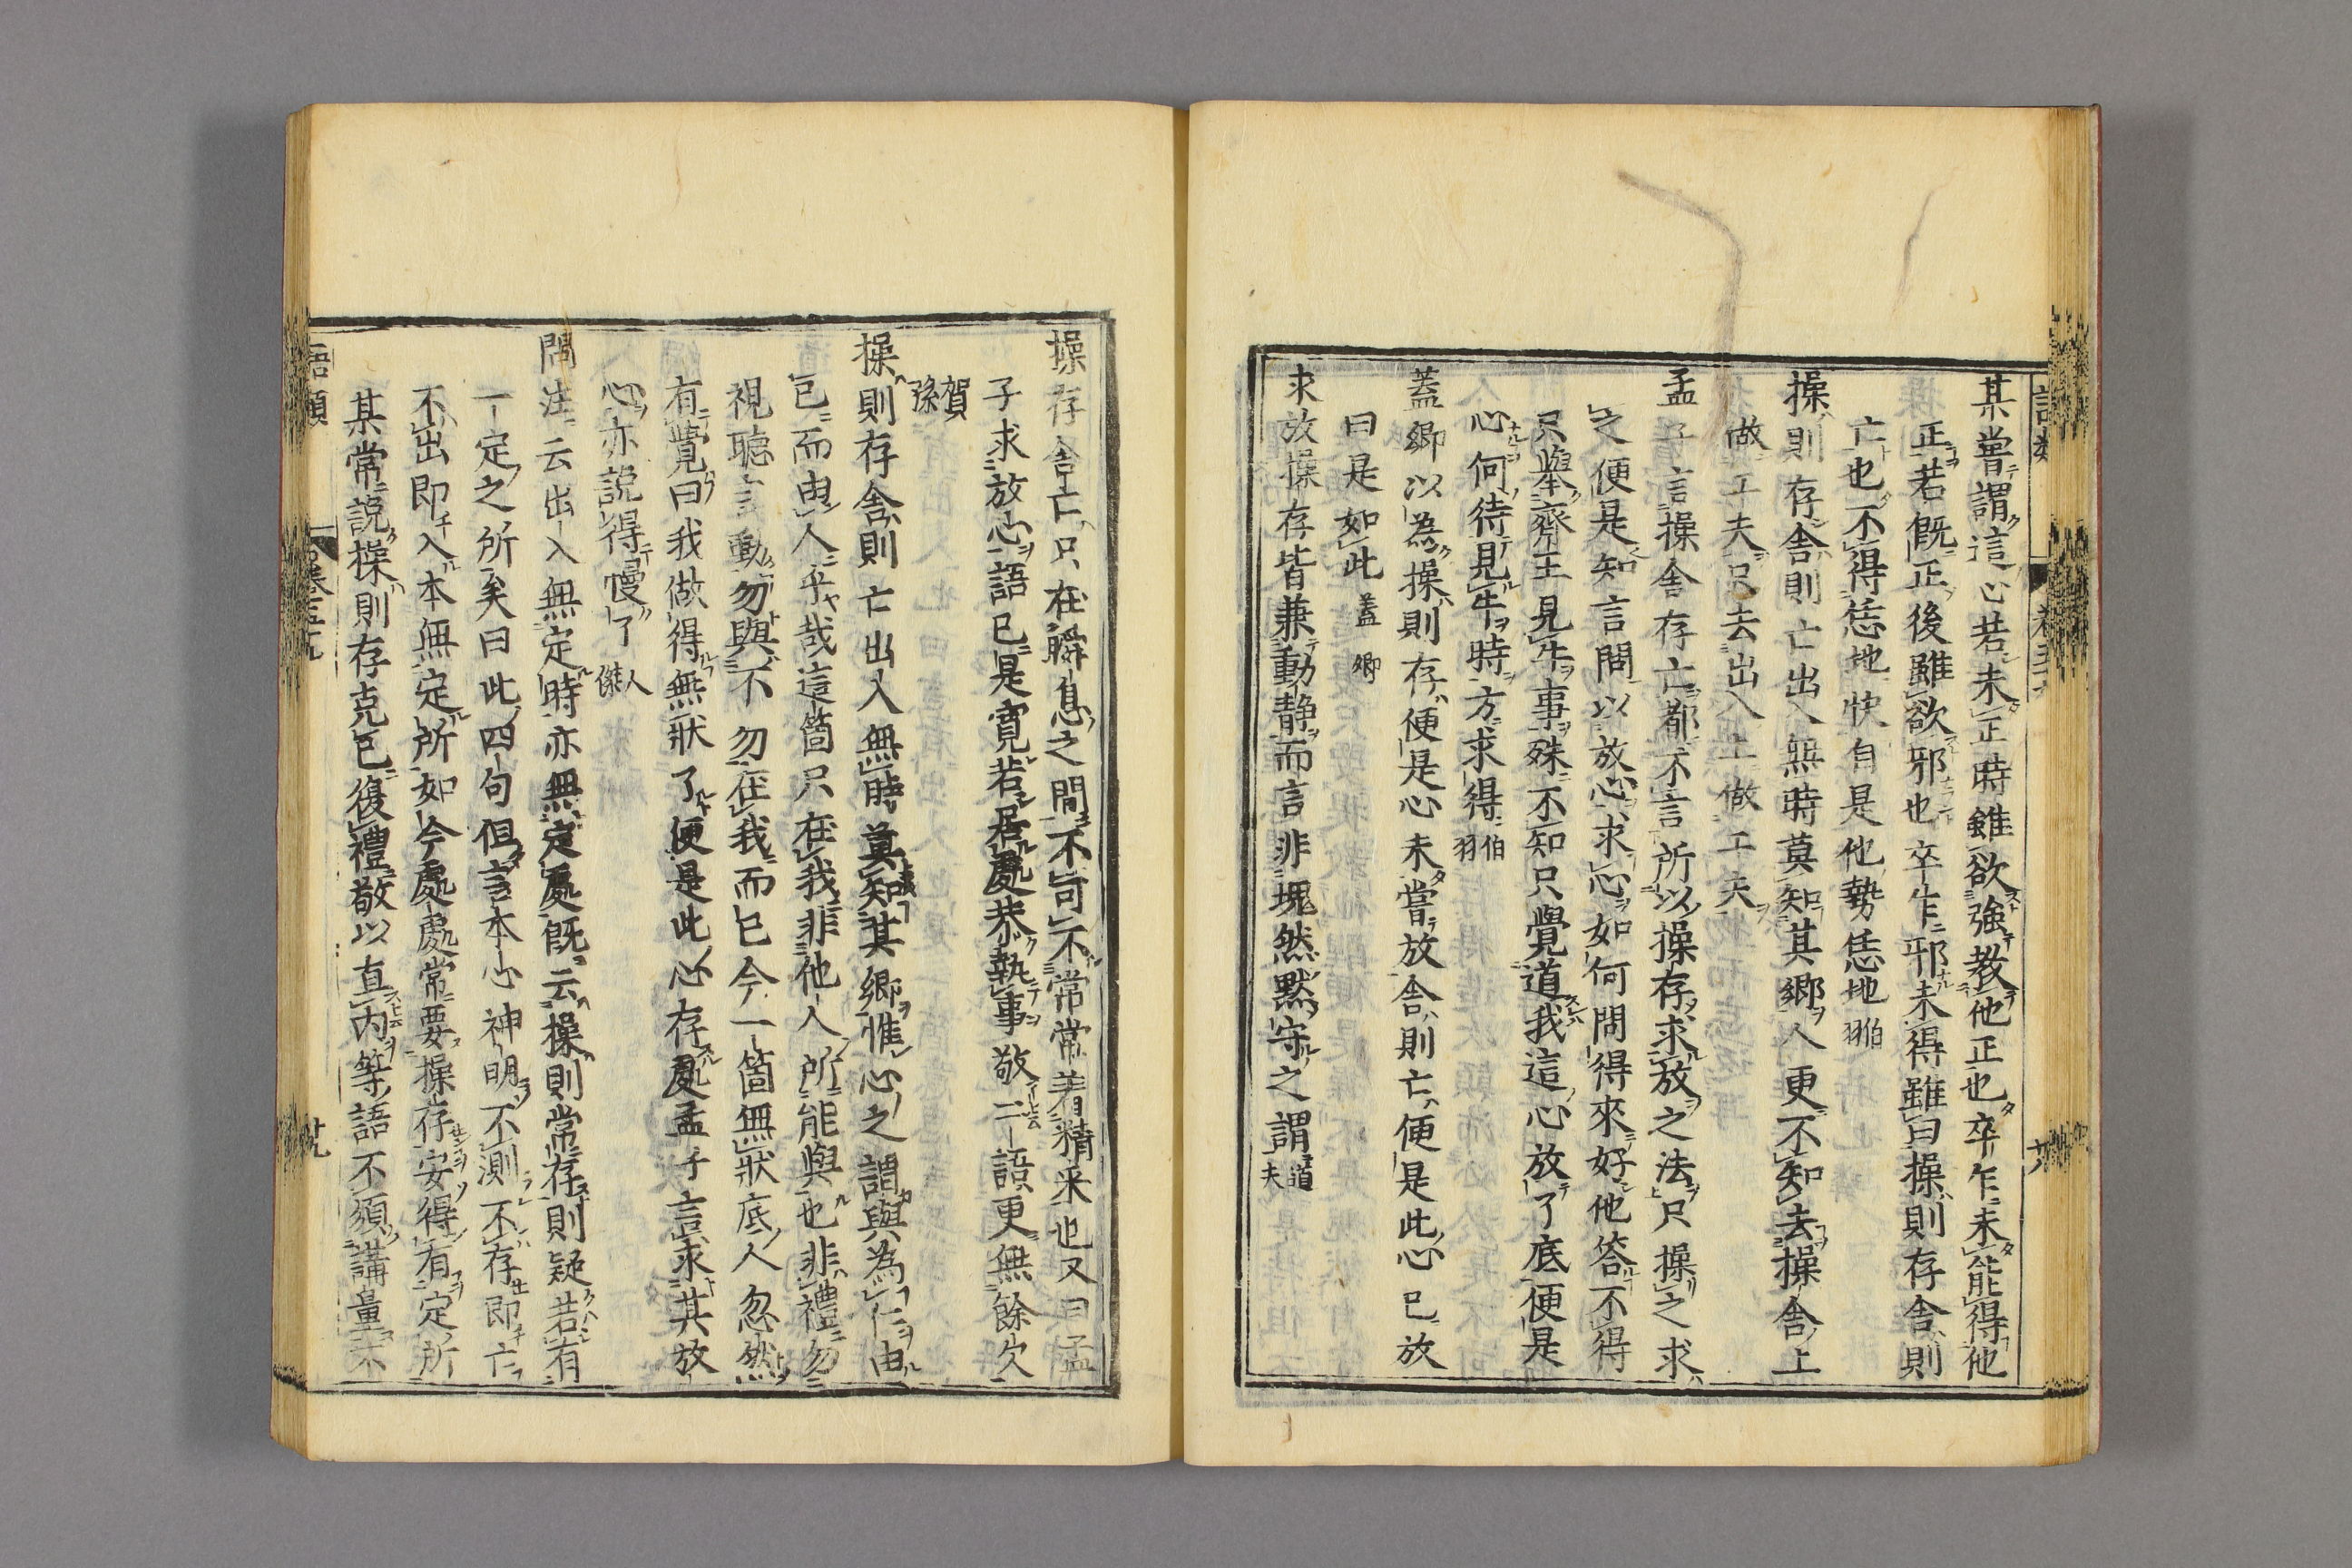 某嘗謂這心若未正時雖欲強教他正也卒乍未能得他
正若既正後雖欲邪也卒乍邪未得雖曰操則存舍則
亡也不得恁地快自是他勢恁地伯羽
操則存舍則亡出入無時莫知其鄉人更不知去操舍上
做工夫只去出入上做工夫
孟子言操舍存亡都不言所以操存求放之法只操之求
之便是知言問以放心求心如何問得來好他答不得
只舉齊王見牛事殊不知只覺道我這心放了底便是
心何待見牛時方求得伯羽
蓋卿以為操則存便是心未嘗放舍則亡便是此心已放
曰是如此蓋卿
求放操存皆兼動靜而言非塊然默守之謂道夫
操存舍亡只在瞬息之間不可不常常着精采也又曰孟
子求放心語已是寬若居處恭執事敬二語更無餘欠
賀孫
操則存舍則亡出入無時莫知其鄉惟心之謂與為仁由
已而由人乎哉這箇只在我非他人所能與也非禮勿
視聽言動勿與不勿在我而已今一箇無狀底人忽然
有覺曰我做得無狀了便是此心存處孟子言求其放
心亦說得慢了人傑
問注云出入無定時亦無定處既云操則常存則疑若有
一定之所矣曰此四句但言本心神明不測不存即亡
不出即入本無定所如今處處常要操存安得有定所
某常說操則存克已復禮敬以直內等語不須講量不
語類
卷五十九
廿九